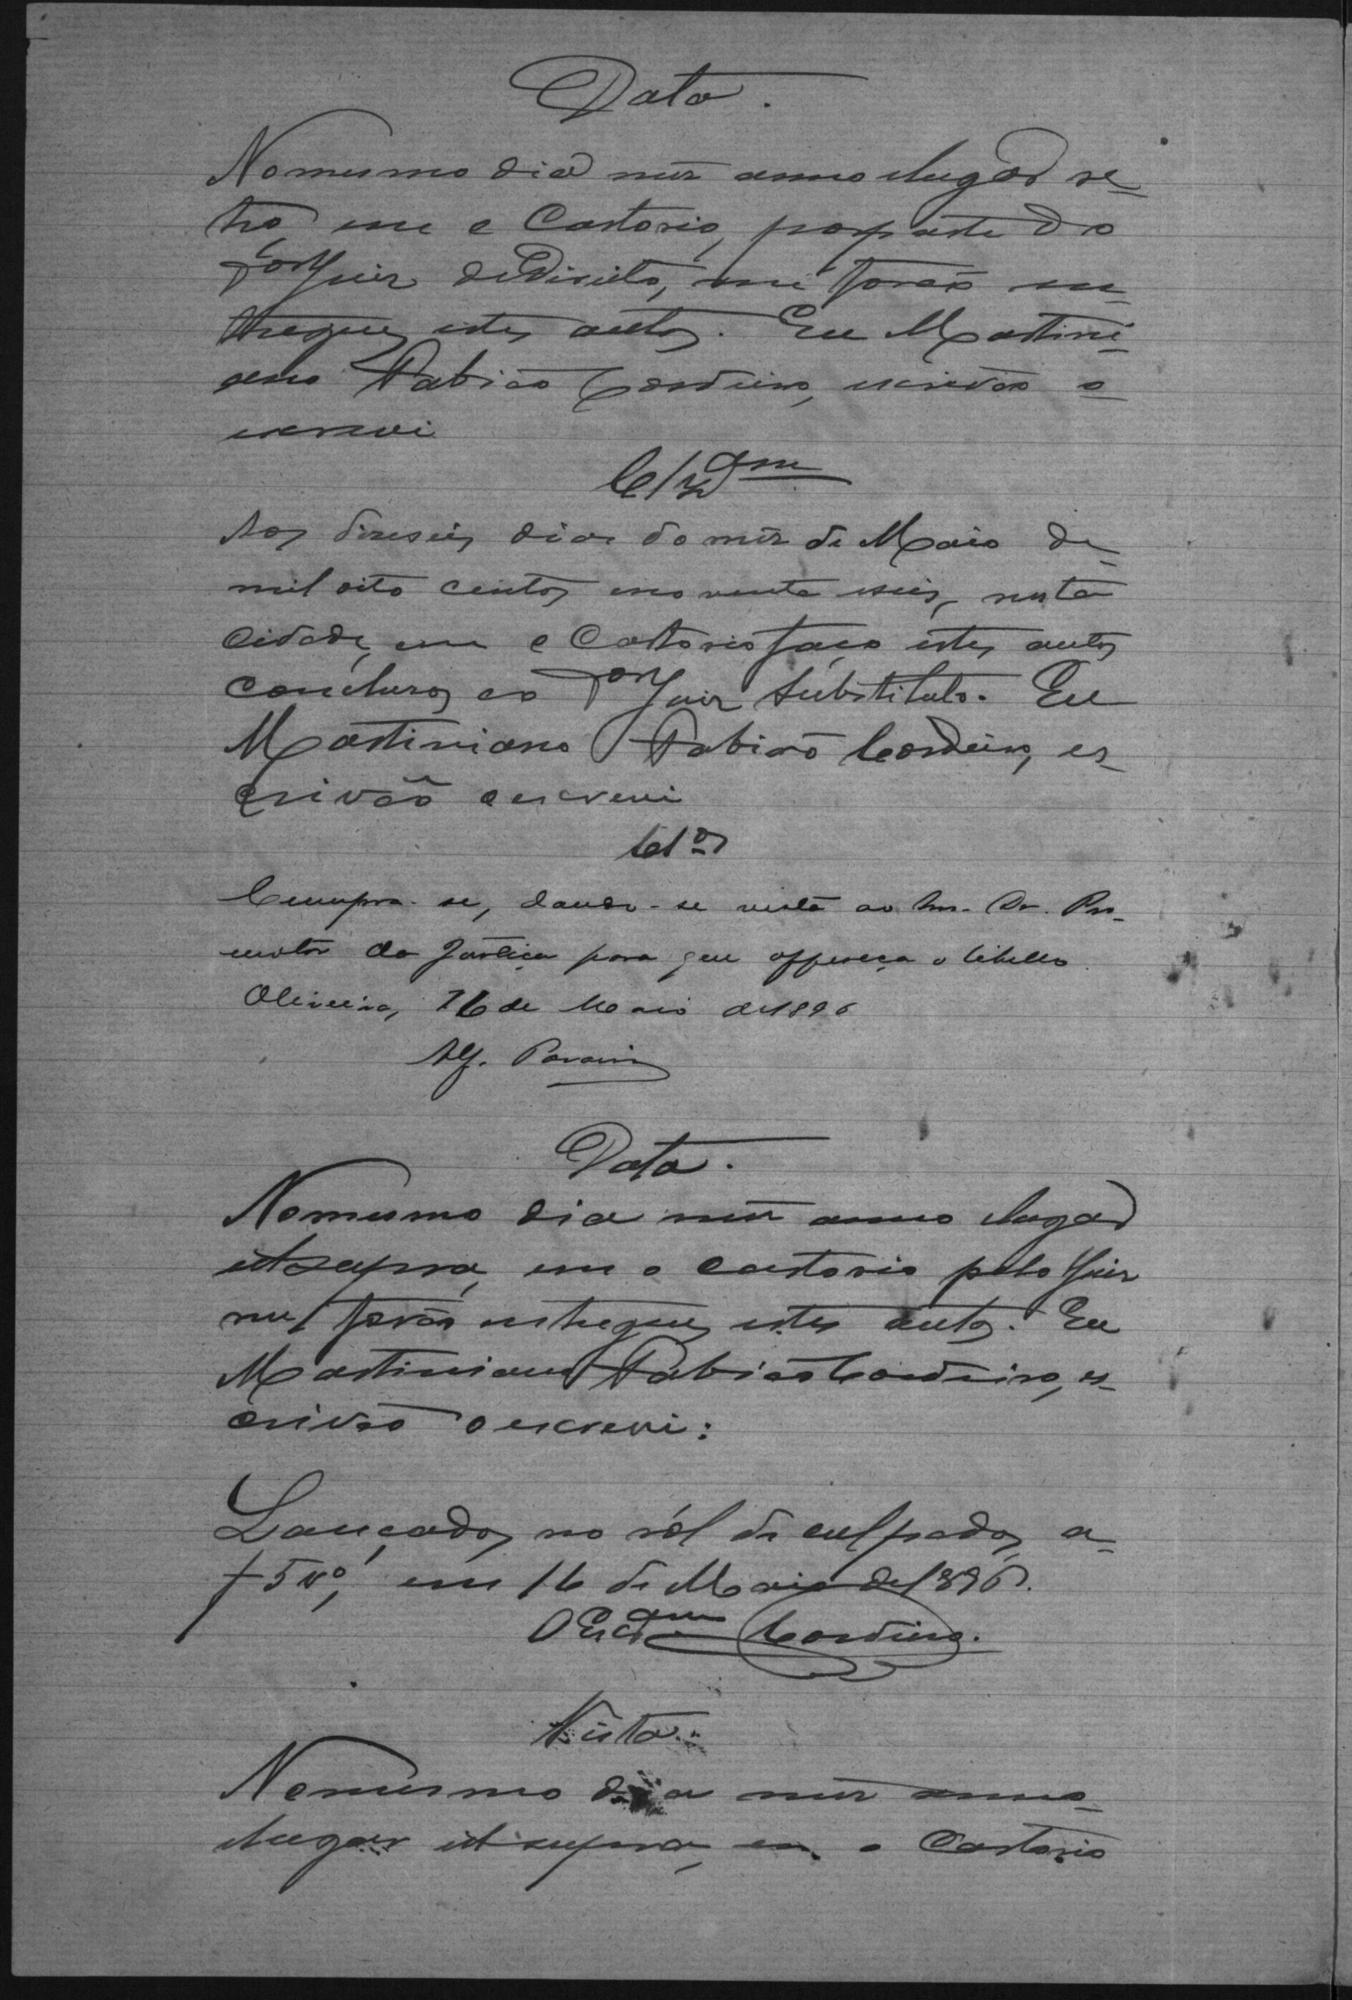 Data.
No mesmo dia mez anno e lugar re-
tro, em o Cartorio, por parte do
Dor Juiz de Direito, me forão en-
tregues estes autos. Eu Martini-
ano Fabião Cordeiro, escrivão o
escrevi
Clzam
Aos dizeseis dias do mez de Maio de
mil oito centos e noventa e seis, nesta
cidade, em o Cartorio faço estes autos
conclusos ao Dor Juiz Substituto. Eu
Martiniano Fabião Cordeiro, es-
crivão o escrevi
Clos
Cumpra-se, dando-se vista ao Snr. Dr. Pro-
motor da Justiça para que offereça o libello.
Oliveira, 16 de Maio de 1896
Data.
No mesmo dia mez anno e lugar
ut supra, em o cartorio pelo Juiz
me forão entregues estes autos. Eu
Martiniano Fabião Cordeiro, es-
crivão o escrevi:
Lançados no ról de culpados a-
f 5 vo, em 16 de Maio de 1896.
O Escam Cordeiro.
Vista.
No mesmo dia mez anno
e lugar ut supra, em o Cartorio